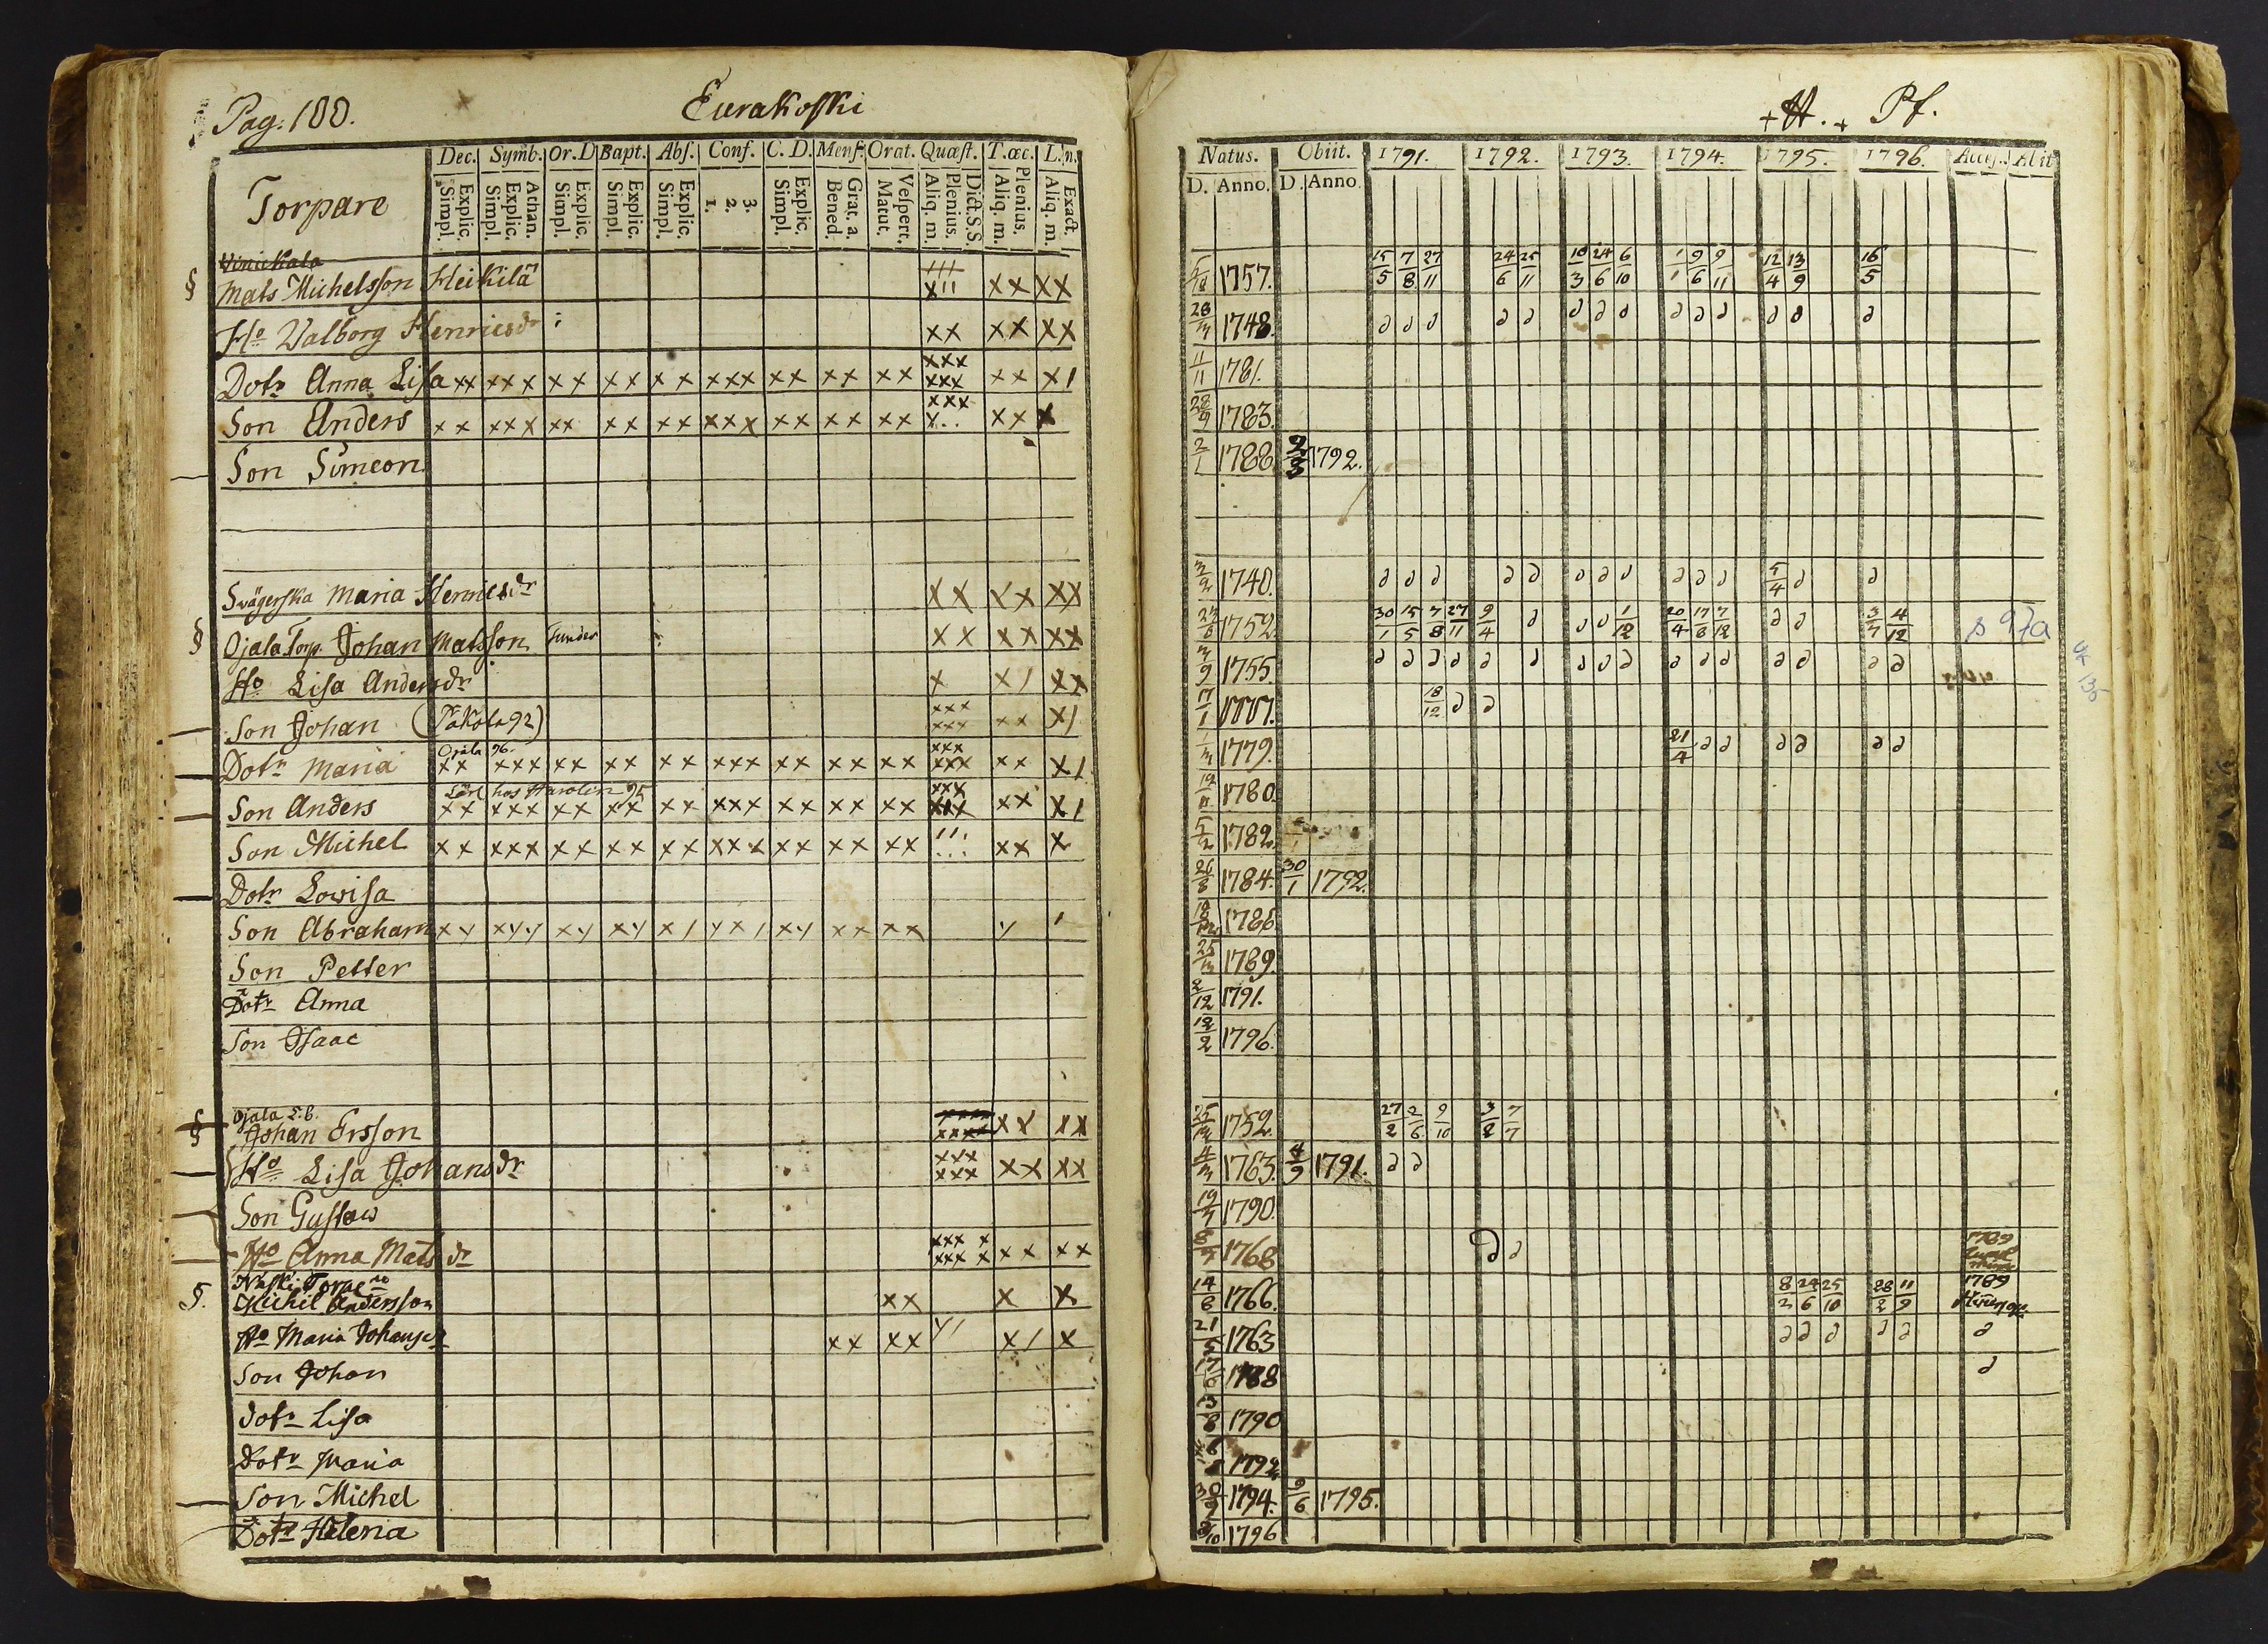 Pag. 188. Eurakosski
Torpare
Dec. Symb. Or. D Bapt. Abs. Conf. C. D. Mens. Orat. Quæst. T. œc. L. n.
Explic. Simpl. Athan. Explic. Simpl. Explic. Simpl. Explic. Simpl. Explic. Simpl. 3. 2. 1. Explic. Simpl. Grat. a. Bened. Vespert. Matut. Dict. S. S. Plenius. Aliq. m. Plenius. Aliq. m. Exact. Aliq. m.
§ Mats Michelsson Heikilä
Ho Valborg Henricsdr
Dotr Anna Lisa xx xxx xx xx xx xxx xx xx xx xxx xxx xx x1
Son Anders xx xxx xx xx xx xxx xx xx xx xxx x.. xx x
Son Simeon
Svägerska Maria Henricsdr xx xx xx
§ Ojala Torp. Johan Matsson xx xx xx
Ho Lisa Andersdr x x/ xx
Son Johan (Pakola 92) xxx xxx xx x/
Ojala 96.
Dotr Maria xx xxx xx xx xx xxx xx xx xx xxx xxx xx x/
Lärl hos 95
Son Anders xx xxx xx xx xx xxx xx xx xx xxx xx x/
Son Michel xx xxx xx xx xx xxx xx xx xx xx x
Dotr Lowisa
Son Abraham
Son Petter
Dotr Anna
Son Isaac
Ojala
§ Johan Ersson xx xx
Ho Lisa Johansdr xxx xxx xx xx
Son Gustaw
Ho Anna Matsdr xxx x xxx x xx xx
§. Michel Andersson xx x x
Ho Maria Johansdr xx xx x/ x
Son Johan
dotr Lisa
Dotr Maria
Son Michel
Dotr Helena
+ H. + Pf.
Natus. Obiit. 1791. 1792. 1793. 1794. 1795. 1796. Access. Abit
D. Anno. D. Anno.
1757. 15/5 7/8 27/11 24/6 25/11 10/3 24/6 6/10 1/1 9/6 9/11 12/4 13/9 16/5
28/3 1748.
11/11 1781.
28/9 1783.
2/1 1788. 2/3 1792.
3/2 1740. 5/4
1752. 30/1 15/5 7/8 27/11 9/4 1/12 20/4 17/8 7/12 3/7 4/12 s 97a
3/9 1755.
17/1 18/12
1/3 1779. 21/4
1780.
5/2 1782.
26/8 1784. 30/1 1792.
1786
25/3 1789.
2/12 1791.
12/2 1796.
1752. 27/2 2/6 9/10 3/2 7/7
4/3 1763. 4/9 1791.
19/7 1790.
1768 1789
14/8 1766. 8/2 24/6 25/10 28/2 11/9 1789
21/5 1763
1788
13/8 1790
1792
30/9 1794. 9/6 1795.
1796